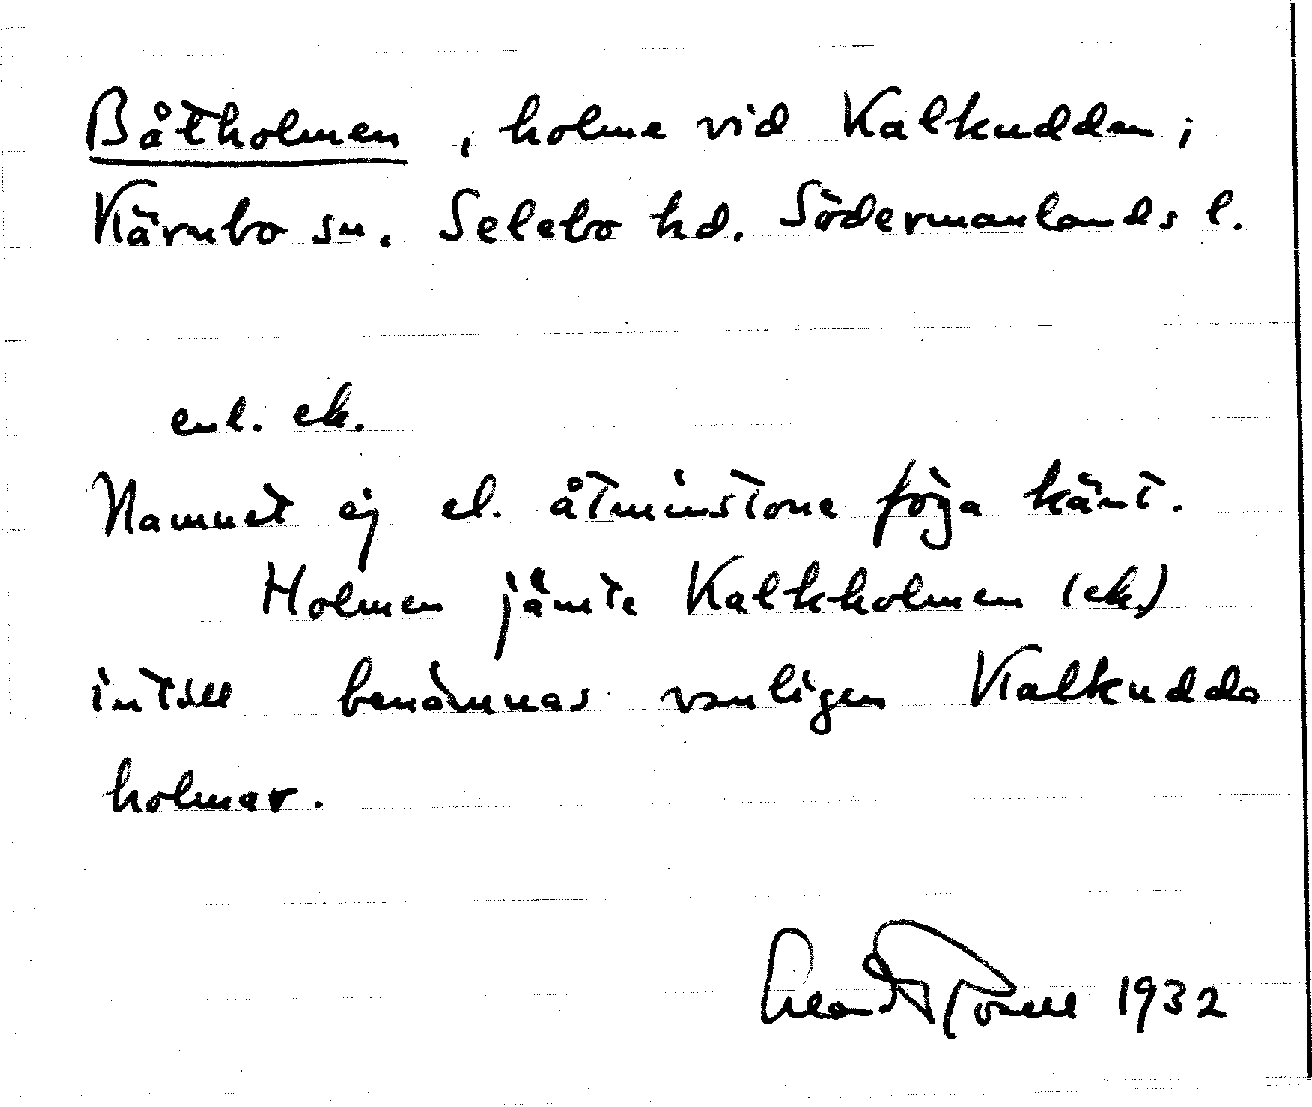 Båtholmen, holme vid Kalkudden i
Kärnbo sn. Selebo hd. Södermanlands l.
enl. ek.
Namnet ej el. åtminstone föga känt.
Holmen jämte Kalkholmen (ek)
intill benämnas vanligen Kalkudda
holmar.
1932